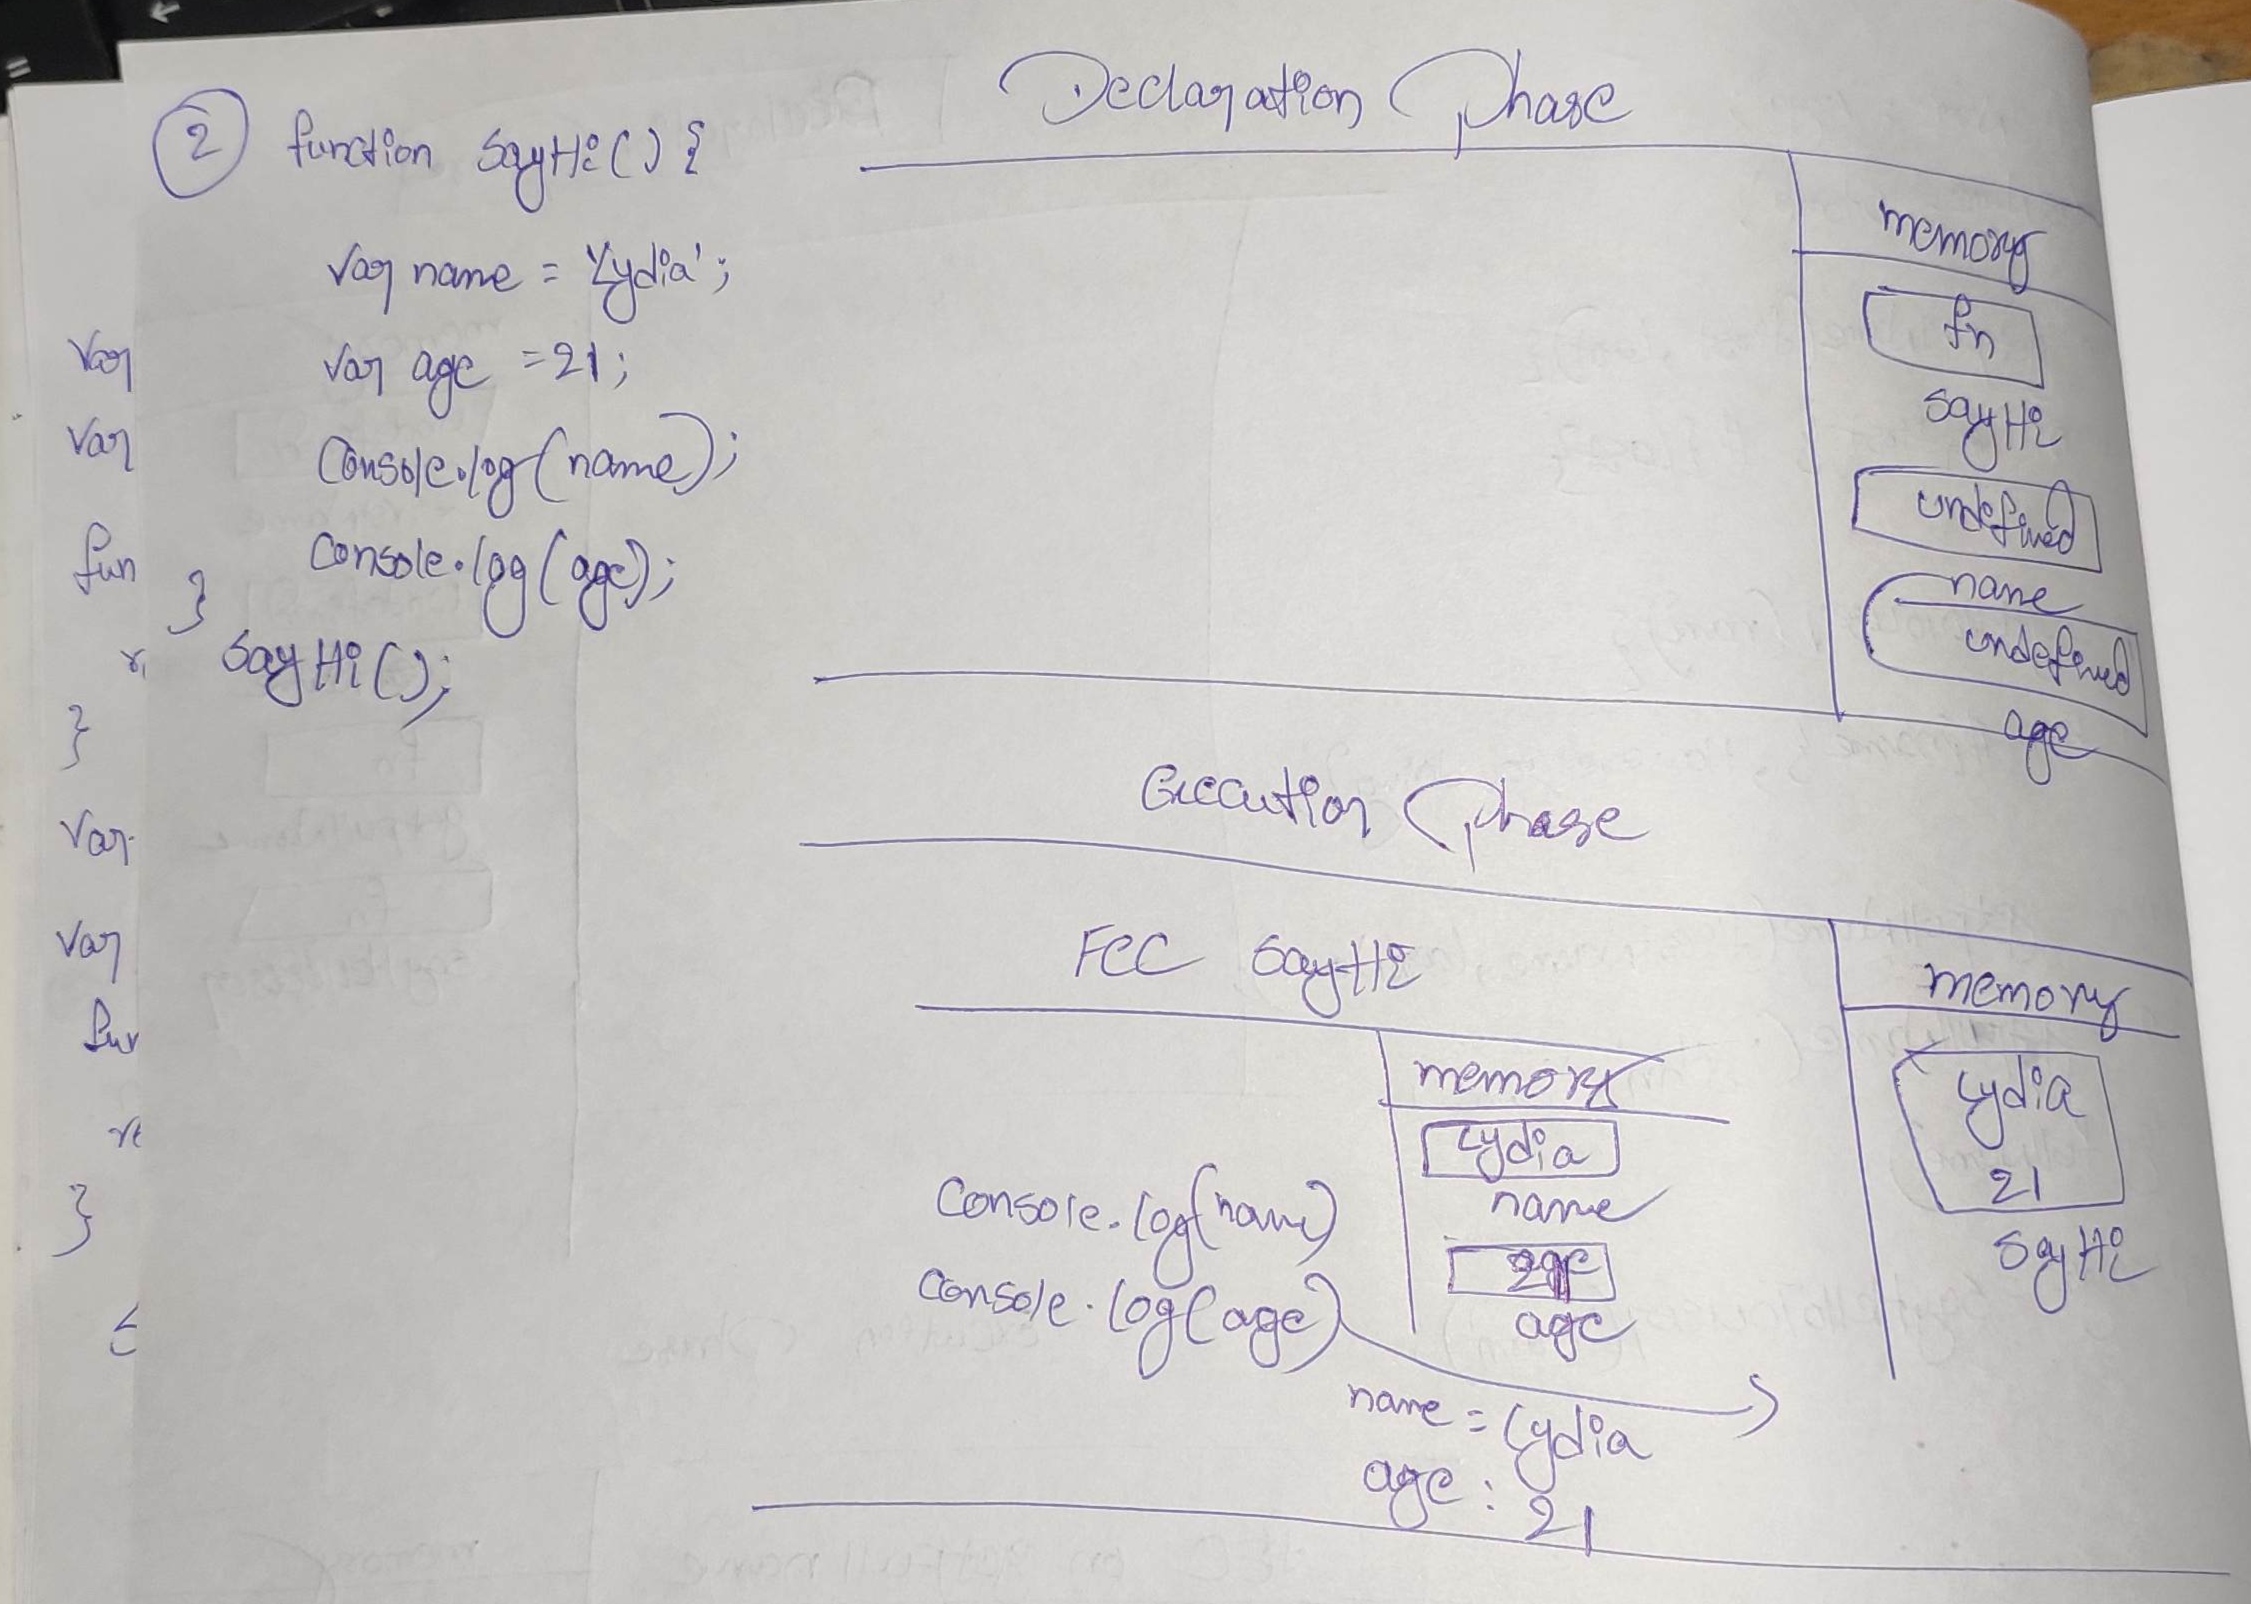 2 function sayHi() {
var name = 'Lydia';
var age = 21;
console.log(name);
console.log(age);
}
sayHi();
Var
Var
fun
}
Var
Var
fun
re
}
Declaration Phase
memory
fn
sayHi
undefined
name
undefined
age
Execution Phase
FEC sayHi
memory
Lydia
name
age
console.log(name)
console.log(age)
name = Lydia
age : 21
memory
Lydia
21
sayHi